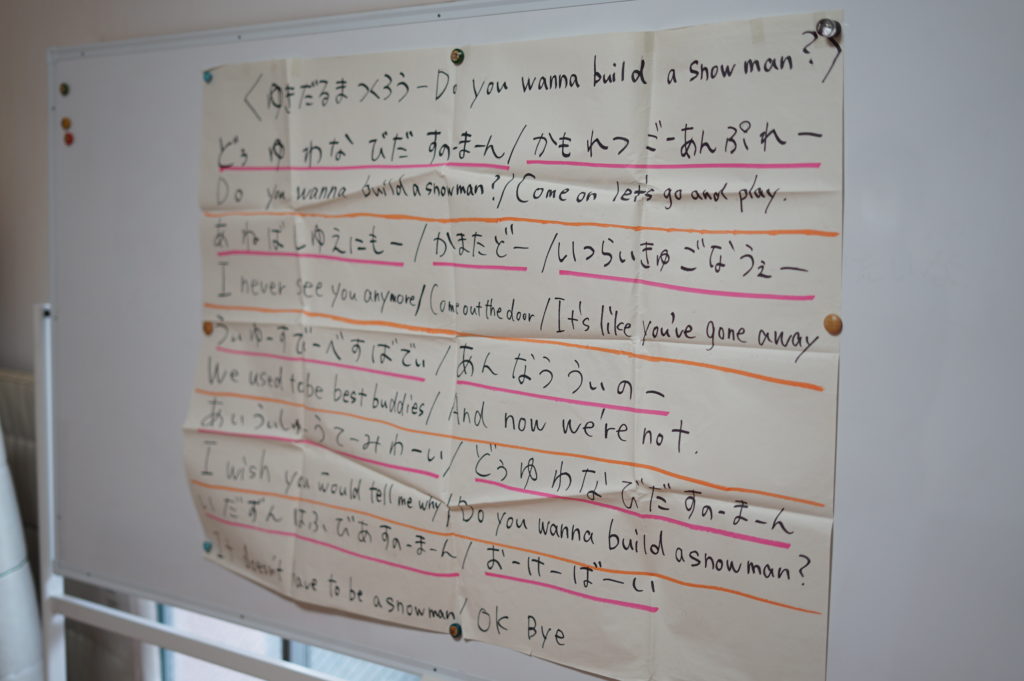 〈ゆきだるまつくろう-Do you wanna build a snow man?〉
どぅ ゆ わな びだ すの-ま-ん/かもれつ ご-あんぷれー
Do you wanna build a snowman?/Come on let's go and play.
あねばしゆえにもー/かまたどー/いつらいきゅごなうぇー
I never see you anymore/Come out the door/It's like you've gone away
うぃゆーすどぅびーべすばでぃ/あんなううぃのー
We used to be best buddies/And now we're not.
あいうぃしゅうてーみわーい/どぅゆわなびだすの-ま-ん
I wish you would tell me why/Do you wanna build a snowman?
いだずんはふびあすの-ま-ん/お-け-ば-い
It doesn't have to be a snowman/OK Bye